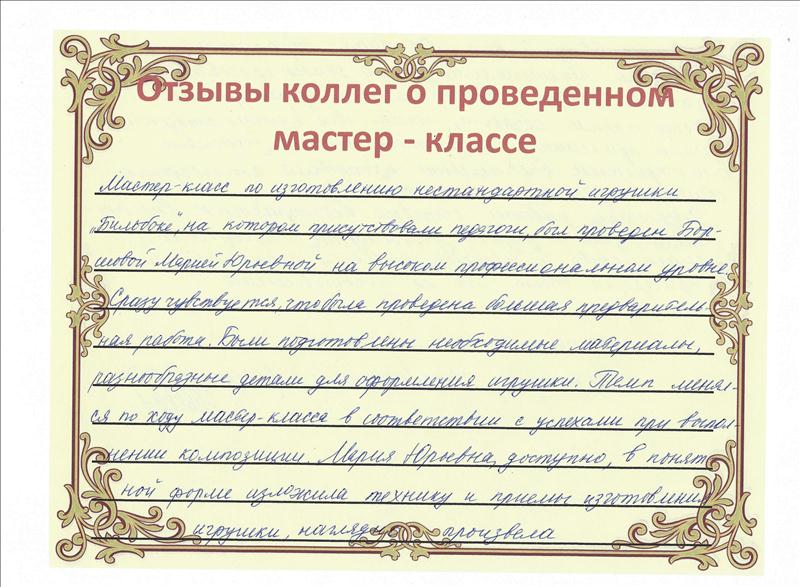 Отзывы коллег о проведенном
мастер - классе
Мастер-класс по изготовлению нестандартной игрушки
„Бильбоке", на котором присутствовали педагоги, был проведен Бор-
шовой Марией Юрьевной на высоком профессиональном уровне.
Сразу чувствуется, что была проведена большая предваритель-
ная работа. Были подготовлены необходимые материалы,
разнообразные детали для оформления игрушки. Темп менял-
ся по ходу мастер-класса в соответствии с успехами при выпол-
нении композиции. Мария Юрьевна, доступно, в понят-
ной форме изложила технику и приемы изготовления
игрушки, наглядно произвела